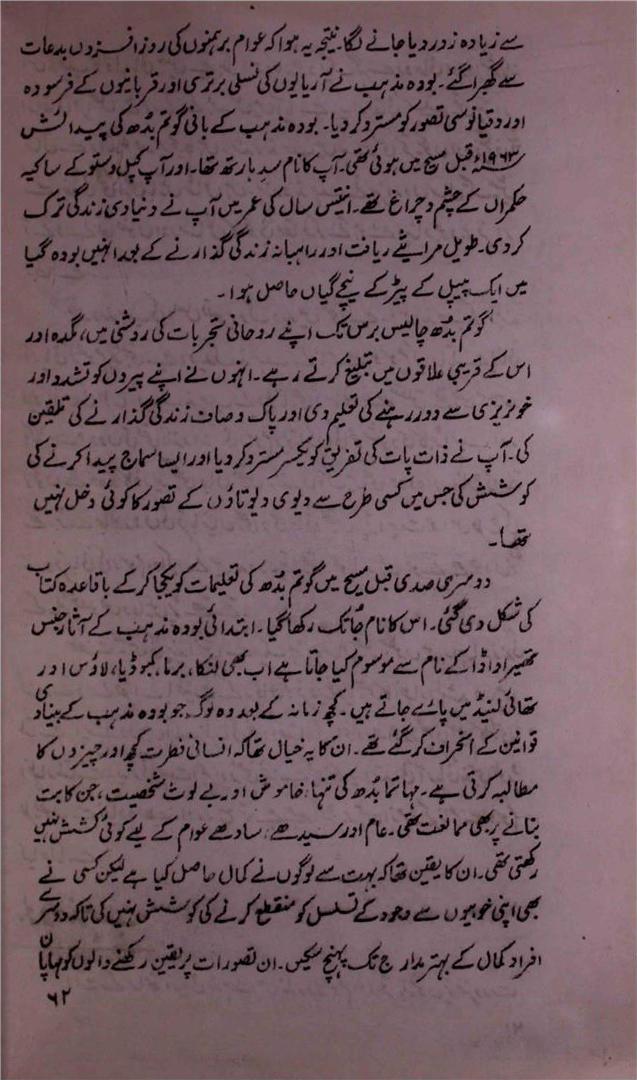 سے زیادہ زور دیا جانے لگا۔ نتیجہ یہ ہوا کہ عوام برہمنوں کی روز افزوں بدعات
سے گھبرا گئے۔ بودھ مذہب نے آریاؤں کی نسلی برتری اور قربانیوں کے فرسودہ
اور دقیانوسی تصور کو مسترد کر دیا۔ بودھ مذہب کے بانی گوتم بُدھ کی پیدائش
۱۹۶۳ء قبل مسیح میں ہوئی تھی۔ آپ کا نام سدِ ہارتھ تھا۔ اور آپ کپل وستو کے ساکیہ
حکمراں کے چشم و چراغ تھے۔ انتیس سال کی عمر میں آپ نے دنیاوی زندگی ترک
کر دی۔ طویل مراقبے ریافت اور راہبانہ زندگی گذارنے کے بعد انہیں بودھ گیا
میں ایک پیپل کے پیڑ کے نیچے گیان حاصل ہوا۔
گوتم بُدھ چالیس برس تک اپنے روحانی تجربات کی روشنی میں، مگدھ اور
اس کے قریبی علاقوں میں تبلیغ کرتے رہے۔ انہوں نے اپنے پیروں کو تشدد اور
خونریزی سے دور رہنے کی تعلیم دی اور پاک و صاف زندگی گذارنے کی تلقین
کی۔ آپ نے ذات پات کی تفریق کو یکسر مسترد کر دیا اور ایسا سماج پیدا کرنے کی
کوشش کی جس میں کسی طرح سے دیوی دیوتاؤں کے تصور کا کوئی دخل نہیں
تھا۔
دوسری صدی قبل مسیح میں گوتم بُدھ کی تعلیمات کو یکجا کر کے باقاعدہ کتاب
کی شکل دی گئی۔ اس کا نام جُاتک رکھا گیا۔ ابتدائی بودھ مذہب کے آثار جنہیں
تھیراواڈا کے نام سے موسوم کیا جاتا ہے اب بھی لنکا، برما، کمبوڈیا، لاؤس اور
تھائی لینڈ میں پائے جاتے ہیں۔ کچھ زمانہ کے بعد وہ لوگ جو بودھ مذہب کے بنیادی
قوانین کے انحراف کر گئے تھے۔ ان کا یہ خیال تھا کہ انسانی فطرت کچھ اور چیزوں کا
مطالبہ کرتی ہے۔ مہاتما بُدھ کی تنہا، خاموش اور بے لوث شخصیت، جن کا بت
بنانے پر بھی ممانعت تھی۔ عام اور سیدھے، سادھے عوام کے لیے کوئی کشش نہیں
رکھتی تھی۔ ان کا یقین تھا کہ بہت سے لوگوں نے کمال حاصل کیا ہے لیکن کسی نے
بھی اپنی خوبیوں سے وجود کے تسلسل کو منقطع کرنے کی کوشش نہیں کی تاکہ دوسرے
افراد کمال کے بہتر مدارج تک پہنچ سکیں۔ ان تصورات پر یقین رکھنے والوں کو مہایان
۶۲